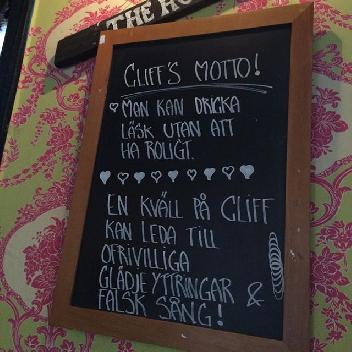 THE HO
CLIFF'S MOTTO!
MAN KAN DRICKA
LÄSK UTAN ATT
HA ROLIGT.
EN KVÄLL PÅ CLIFF
KAN LEDA TILL
OFRIVILLIGA
GLÄDJEYTTRINGAR &
FALSK SÅNG!